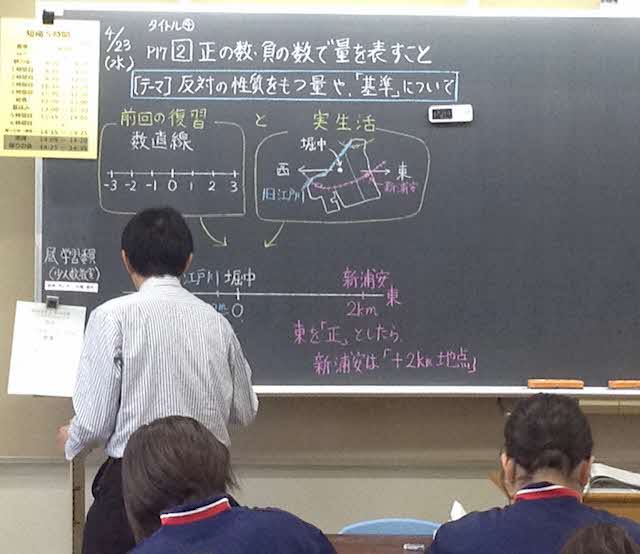 短縮5時間
4/23
(水)
タイトル④
P17 2 正の数・負の数で量を表すこと
[テーマ] 反対の性質をもつ量や、「基準」について
前回の復習 と 実生活
数直線
-3 -2 -1 0 1 2 3
堀中
西 東
旧江戸川 新浦安
学習委員
(少人数教室)
江戸川 堀中 新浦安
東
0 2km
東を「正」としたら、
新浦安は「+2km地点」